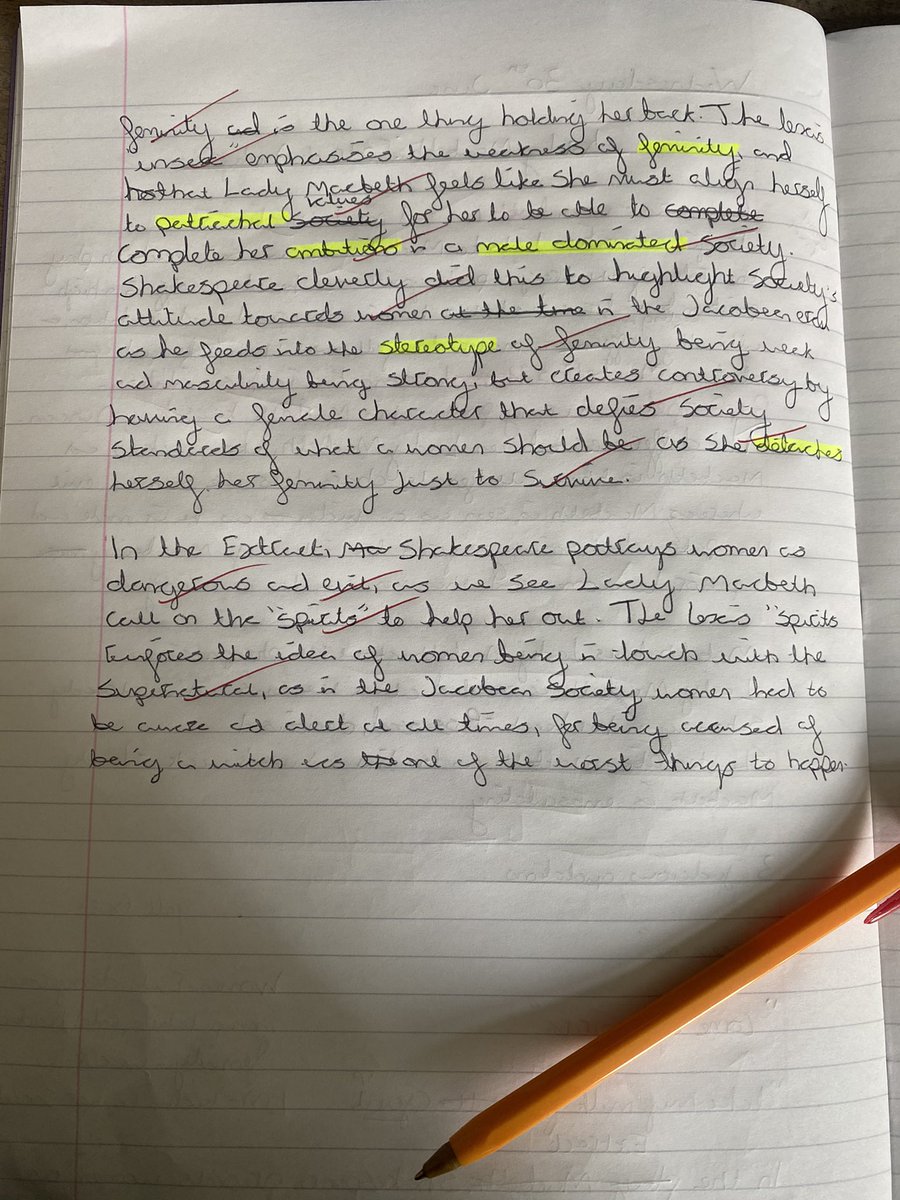 feminity is the one thing holding her back. The lexis
"unsex" emphasises the weakness of feminity, and
that Lady Macbeth feels like she must align herself
to patriachal values for her to be able to
complete her ambitions in a male dominated society.
Shakespeare cleverly did this to highlight society's
attitude towards women in the Jacobean era
as he feeds into the stereotype of feminity being weak
and masculinity being strong, but creates controversy by
having a female character that defies society
standards of what a women should be as she detaches
herself her feminity just to survive.
In the Extract, Shakespeare portrays women as
dangerous and evil, as we see Lady Macbeth
call on the "spirits" to help her out. The lexis "spirits
Enforces the idea of women being in touch with the
supernatural, as in the Jacobean society women had to
be aware and alert at all times, for being accused of
being a witch was one of the worst things to happen.